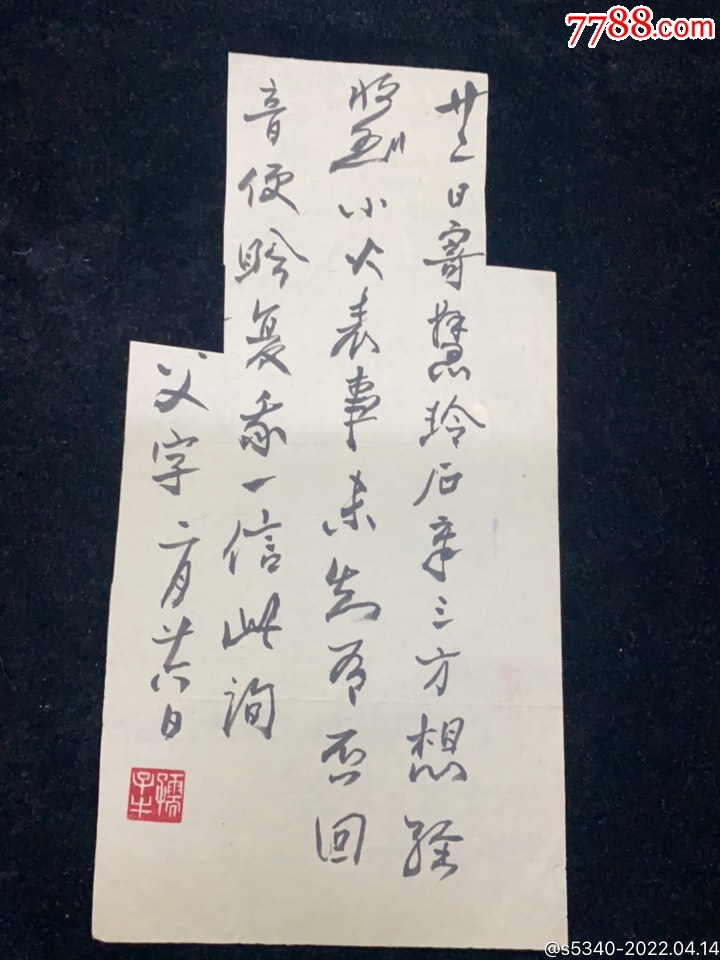 7788.com
廿三日寄慧玲石章三方想经
收到小火表事未知有否回
音便盼复我一信此询
父字 二月廿六日
孺子牛
@s5340-2022.04.14